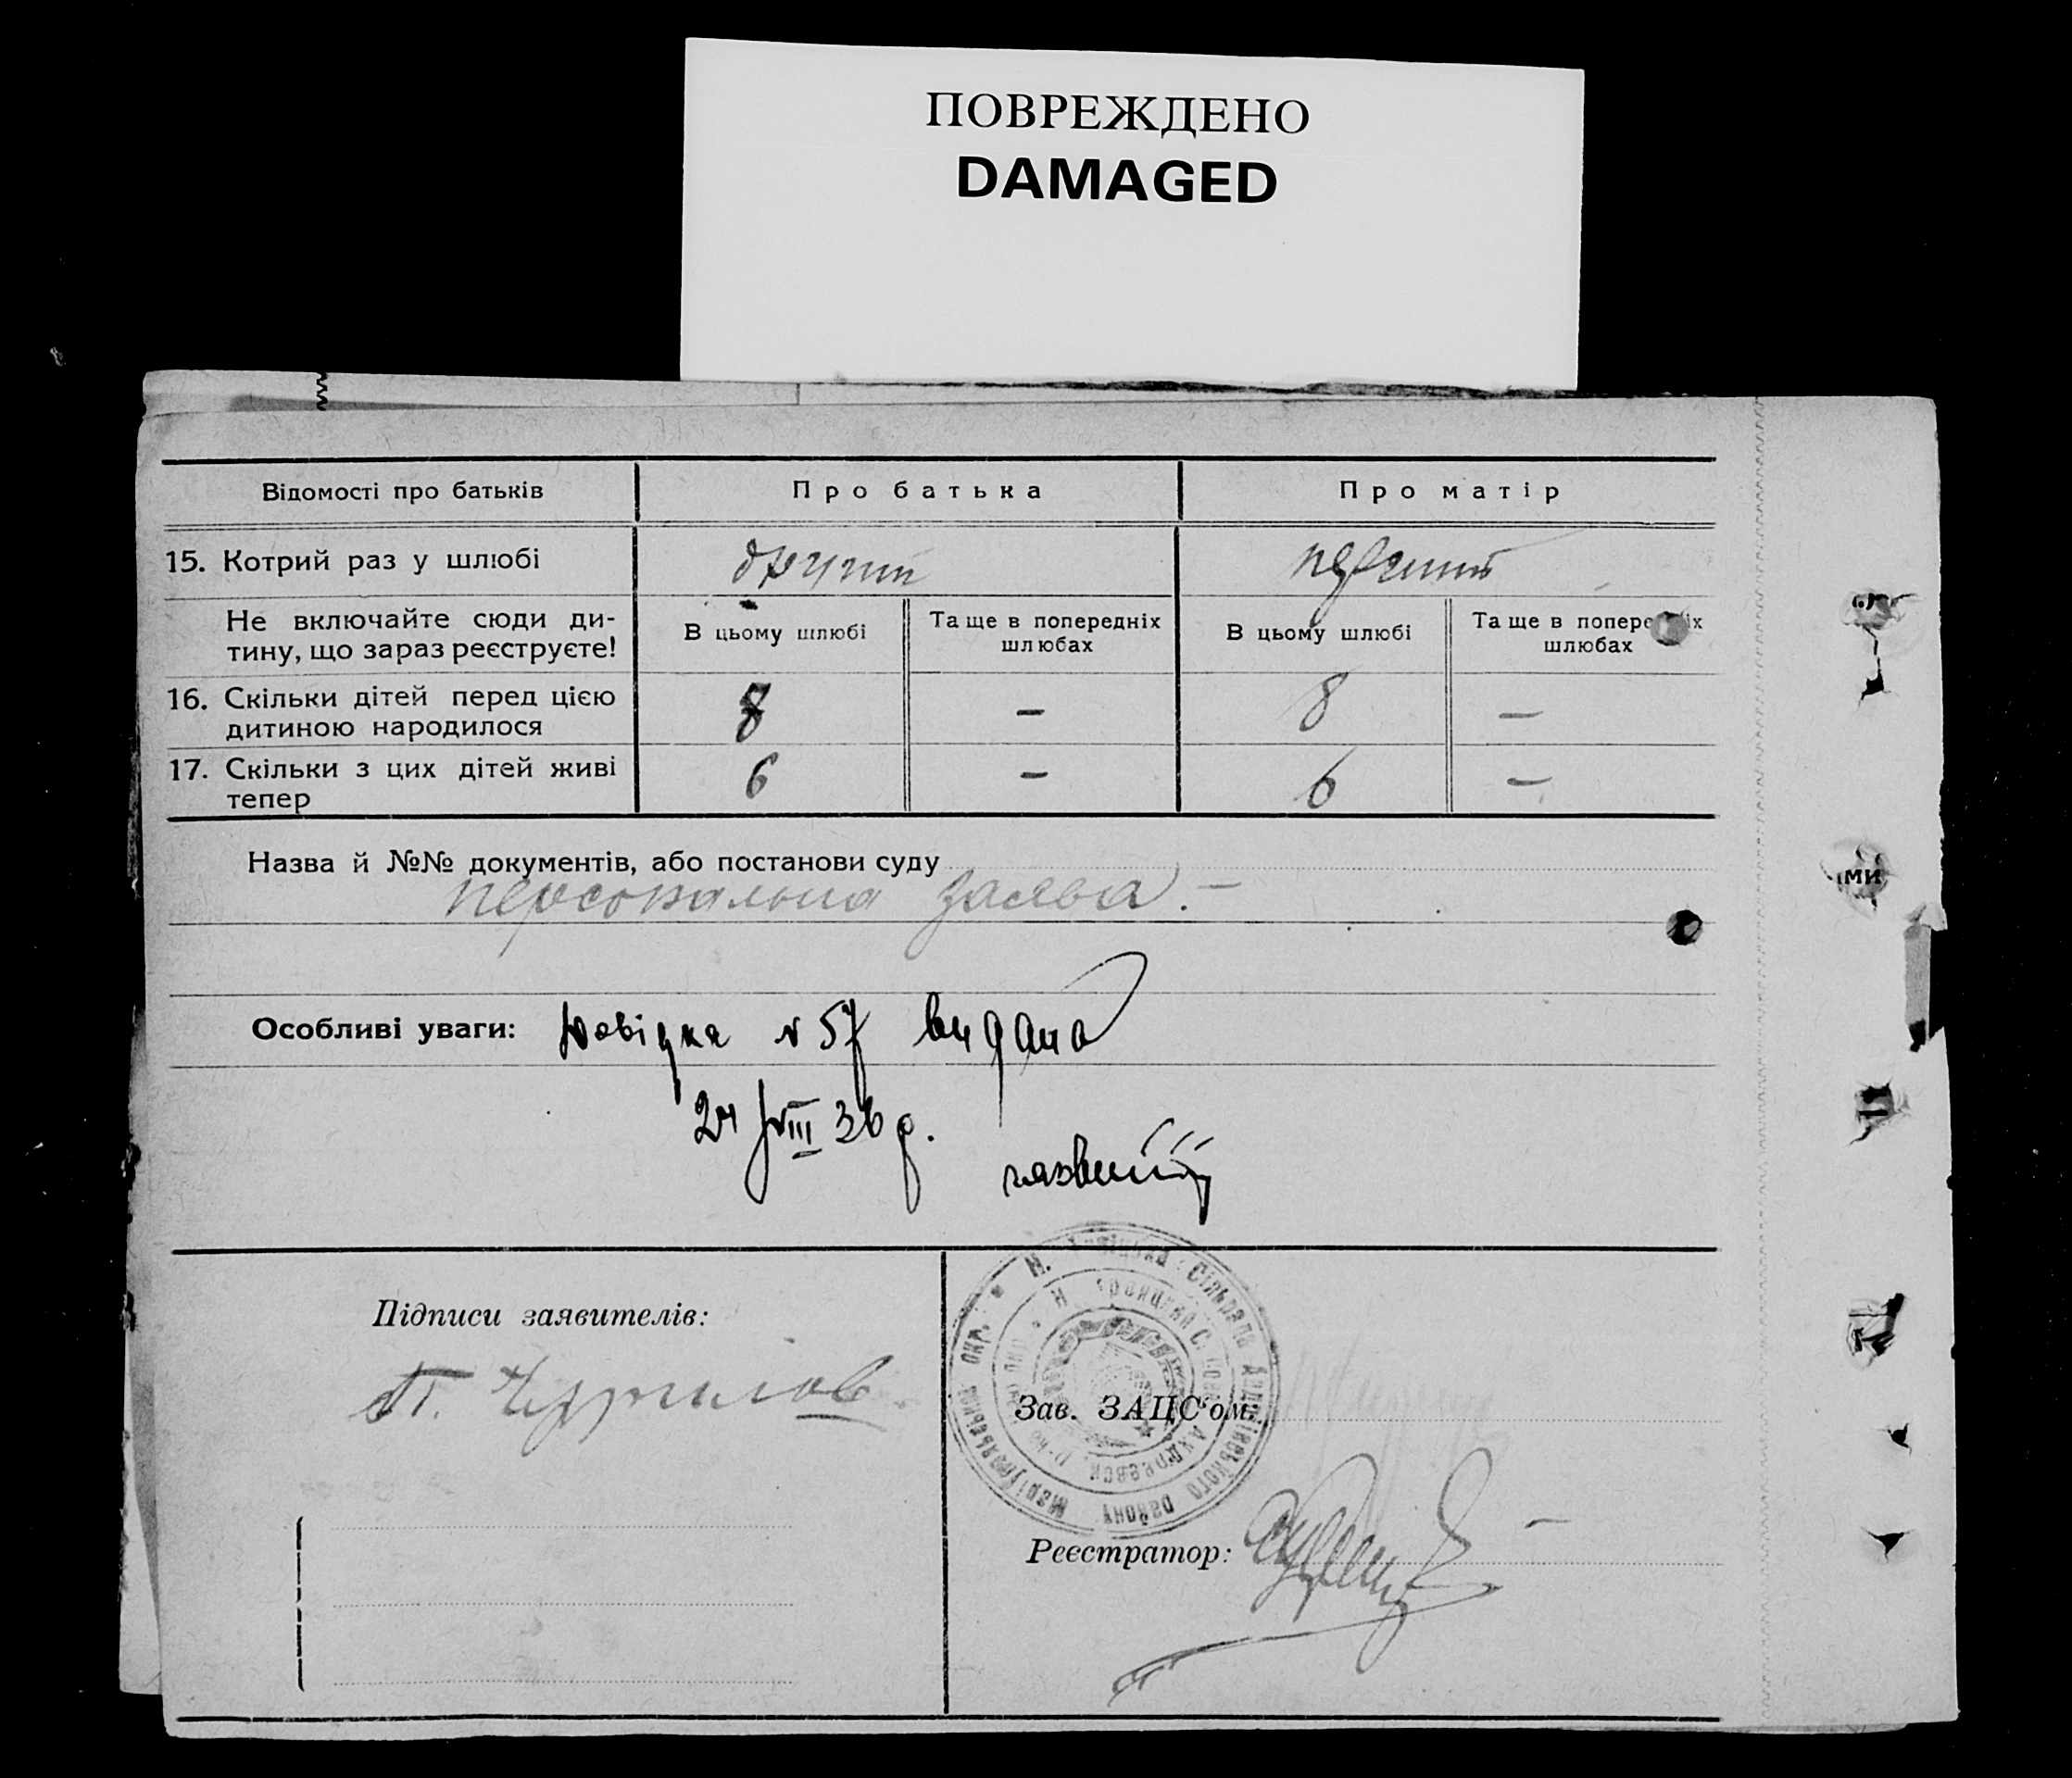 ПОВРЕЖДЕНО
DAMAGED
Відомості про батьків
Про батька
Про матір
15. Котрий раз у шлюбі
другий
перший
Не включайте сюди ди-
тину, що зараз реєструєте!
В цьому шлюбі
Та ще в попередніх
шлюбах
В цьому шлюбі
Та ще в попере іх
шлюбах
16. Скільки дітей перед цією
дитиною народилося
8
—
8
—
17. Скільки з цих дітей живі
тепер
6
—
6
—
Назва й №№ документів, або постанови суду
персональна заява. —
Особливі уваги: Довідка № 57 видана
24/VIII 36 р.
Підписи заявителів:
Зав. ЗАЦС'ом
Реєстратор:
Сільрада Андріївського району Маріупольської окр.
ми